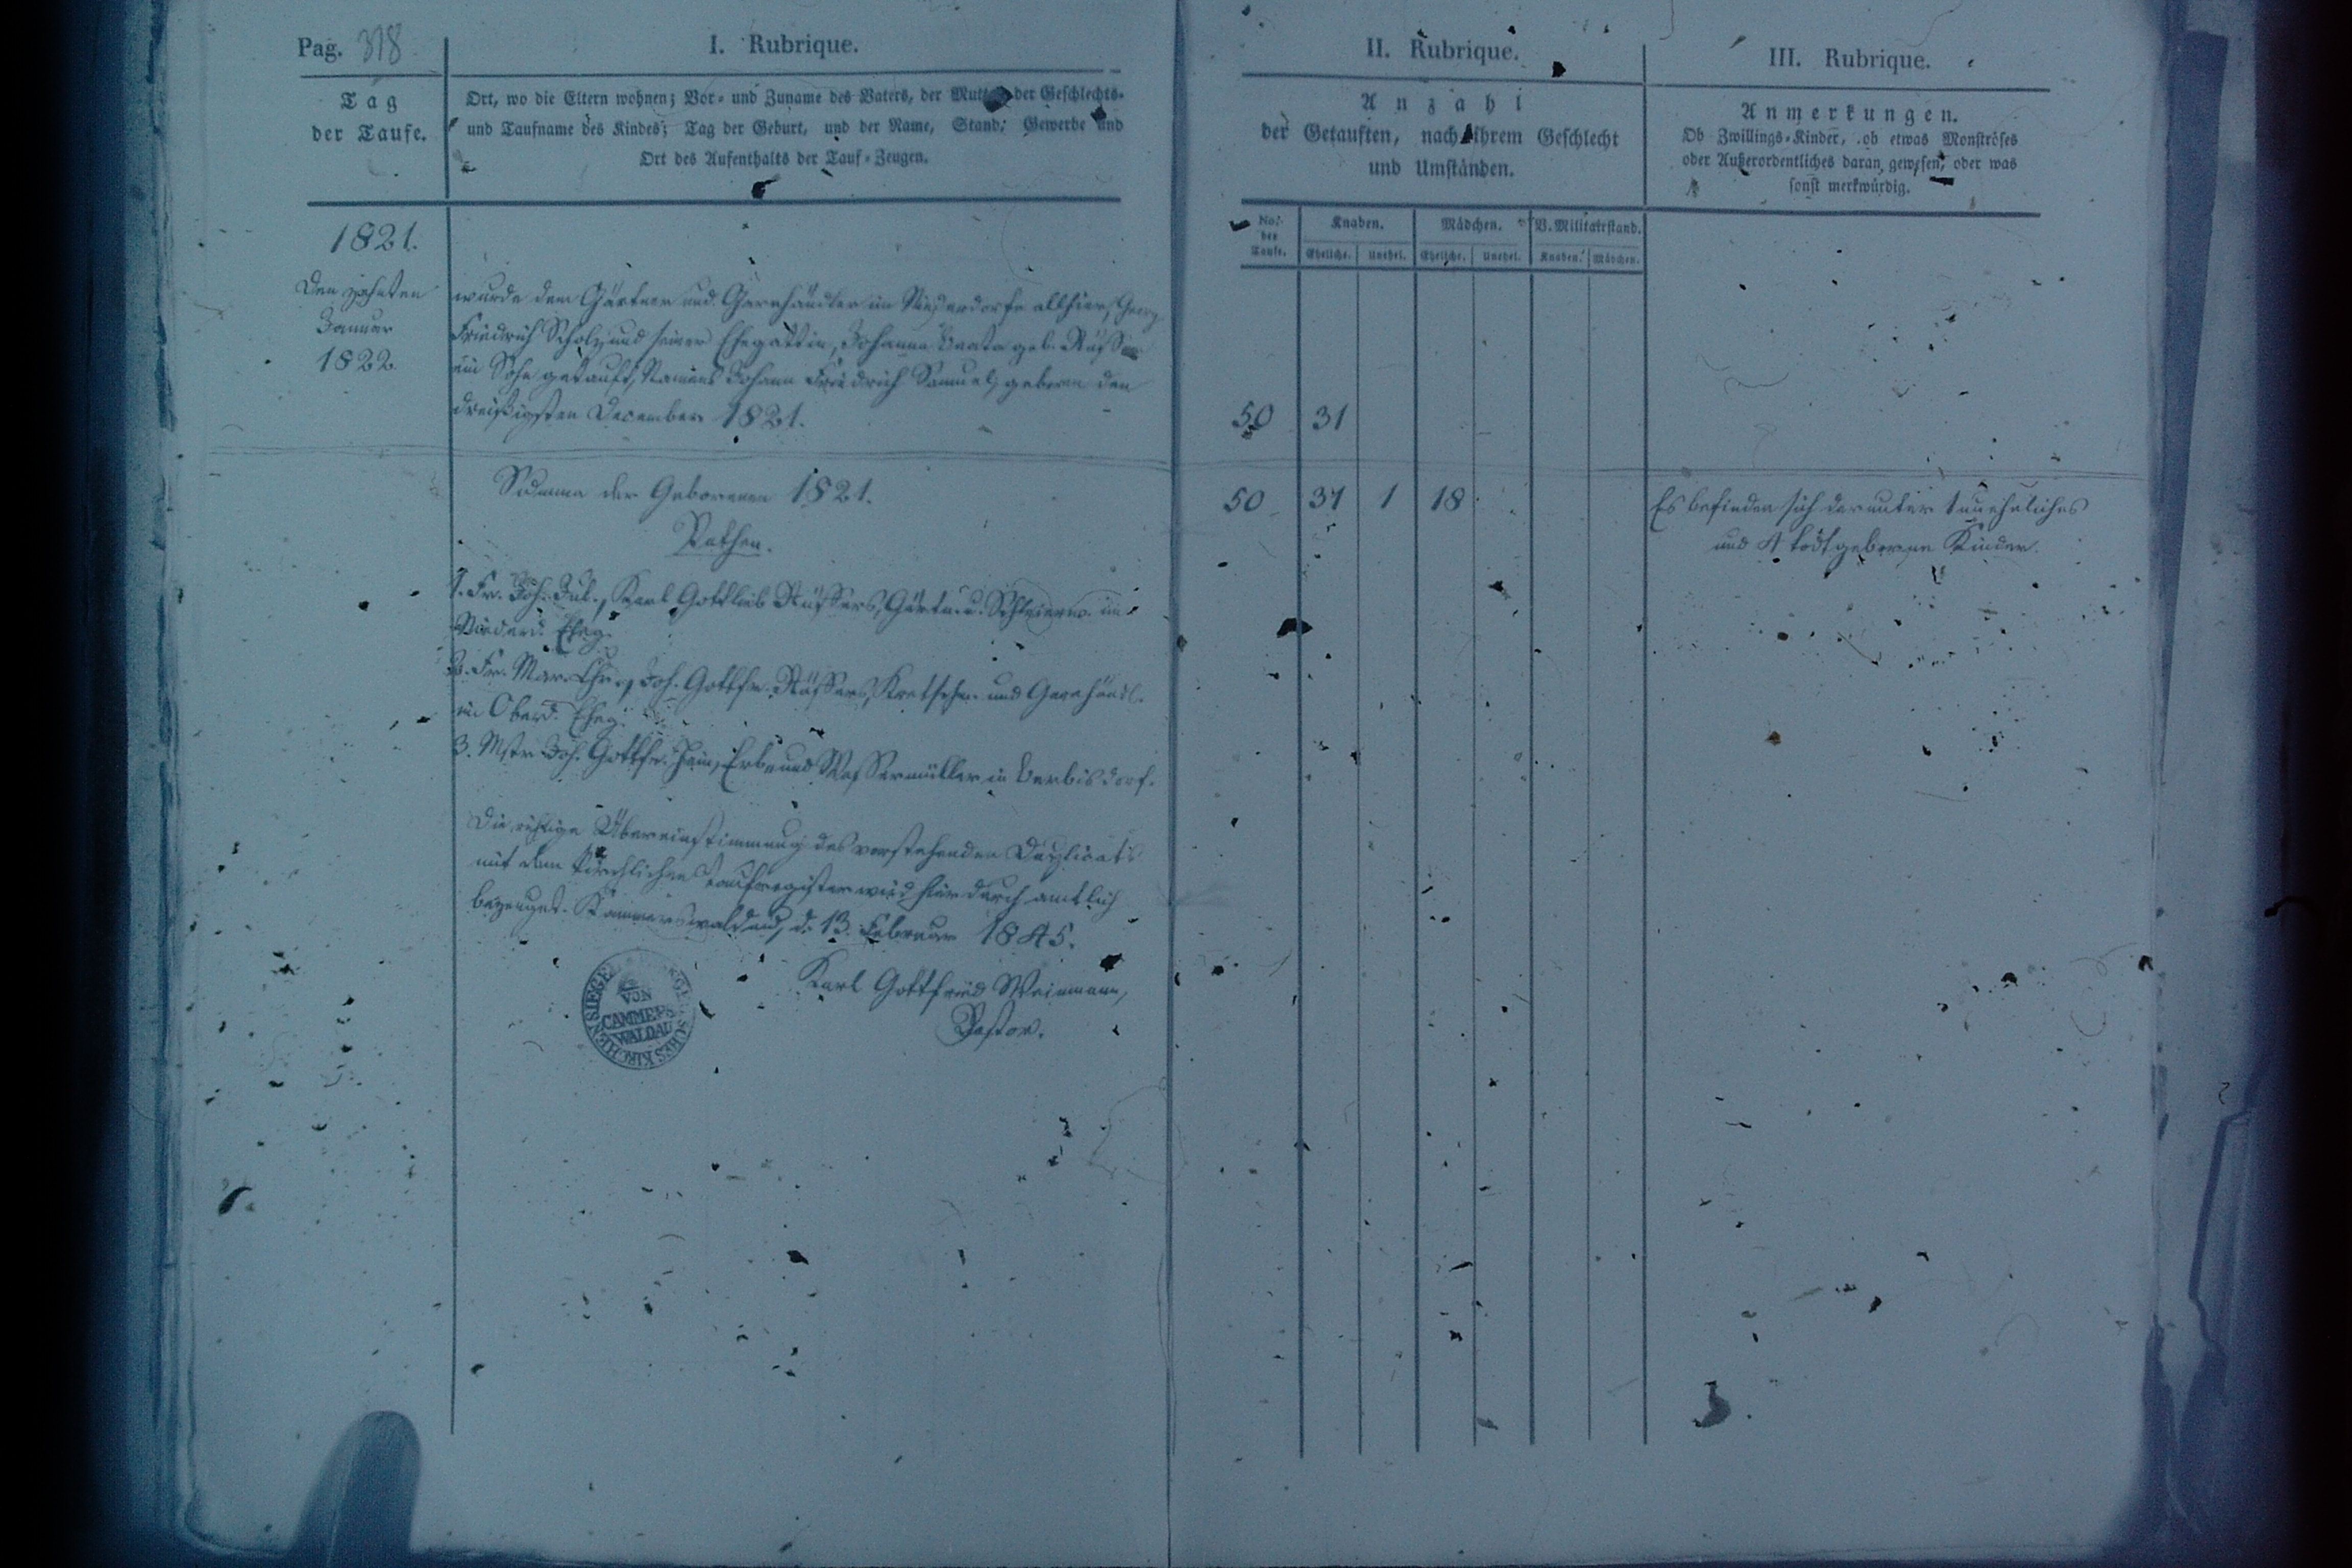 Pag. 318
I. Rubrique.
II. Rubrique.
III. Rubrique.
Tag
der Taufe.
Ort, wo die Eltern wohnen; Vor- und Zuname des Vaters, der Mutter, der Geschlechts-
und Taufname des Kindes; Tag der Geburt, und der Name, Stand, Gewerbe und
Ort des Aufenthalts der Tauf-Zeugen.
Anzahl
der Getauften, nach ihrem Geschlecht
und Umständen.
Anmerkungen.
Ob Zwillings-Kinder, ob etwas Monströses
oder Außerordentliches daran gewesen, oder was
sonst merkwürdig.
No.
der
Taufe.
Knaben.
Mädchen.
V. Militairstand.
Eheliche. Unehel. Eheliche. Unehel. Knaben. Mädchen.
1821.
Den zehnten
Januar
1822.
wurde dem Gärtner und Garnhändler im Niederdorfe allhier, Georg
Friedrich Scholz und seiner Ehegattin, Johanne Beata geb.
ein Sohn getauft, Namens Johann Friedrich Samuel, geboren den
dreißigsten December 1821.
50 31
Summa der Geborenen 1821.
50 31 1 18
Es befinden sich darunter 1 uneheliches
und 4 todtgeborene Kinder.
Pathen.
1. Fr. Joh. Jul., Karl Gottlieb Gärtn. u. im
Niederd. Eheg.
2. Fr. Mar. Chr., Joh. Gottfr. Kretschm. und Garnhändl.
im Oberd. Eheg.
3. Mstr. Joh. Gottfr. Hain, Erb- und Wassermüller in Berbisdorf.
Die richtige Übereinstimmung des vorstehenden Duplicats
mit dem kirchlichen Taufregister wird hierdurch amtlich
bezeuget. Kammerswaldau, d. 13. Februar 1845.
Karl Gottfried Weinmann,
Pastor.
VON
CAMMERS
WALDAU